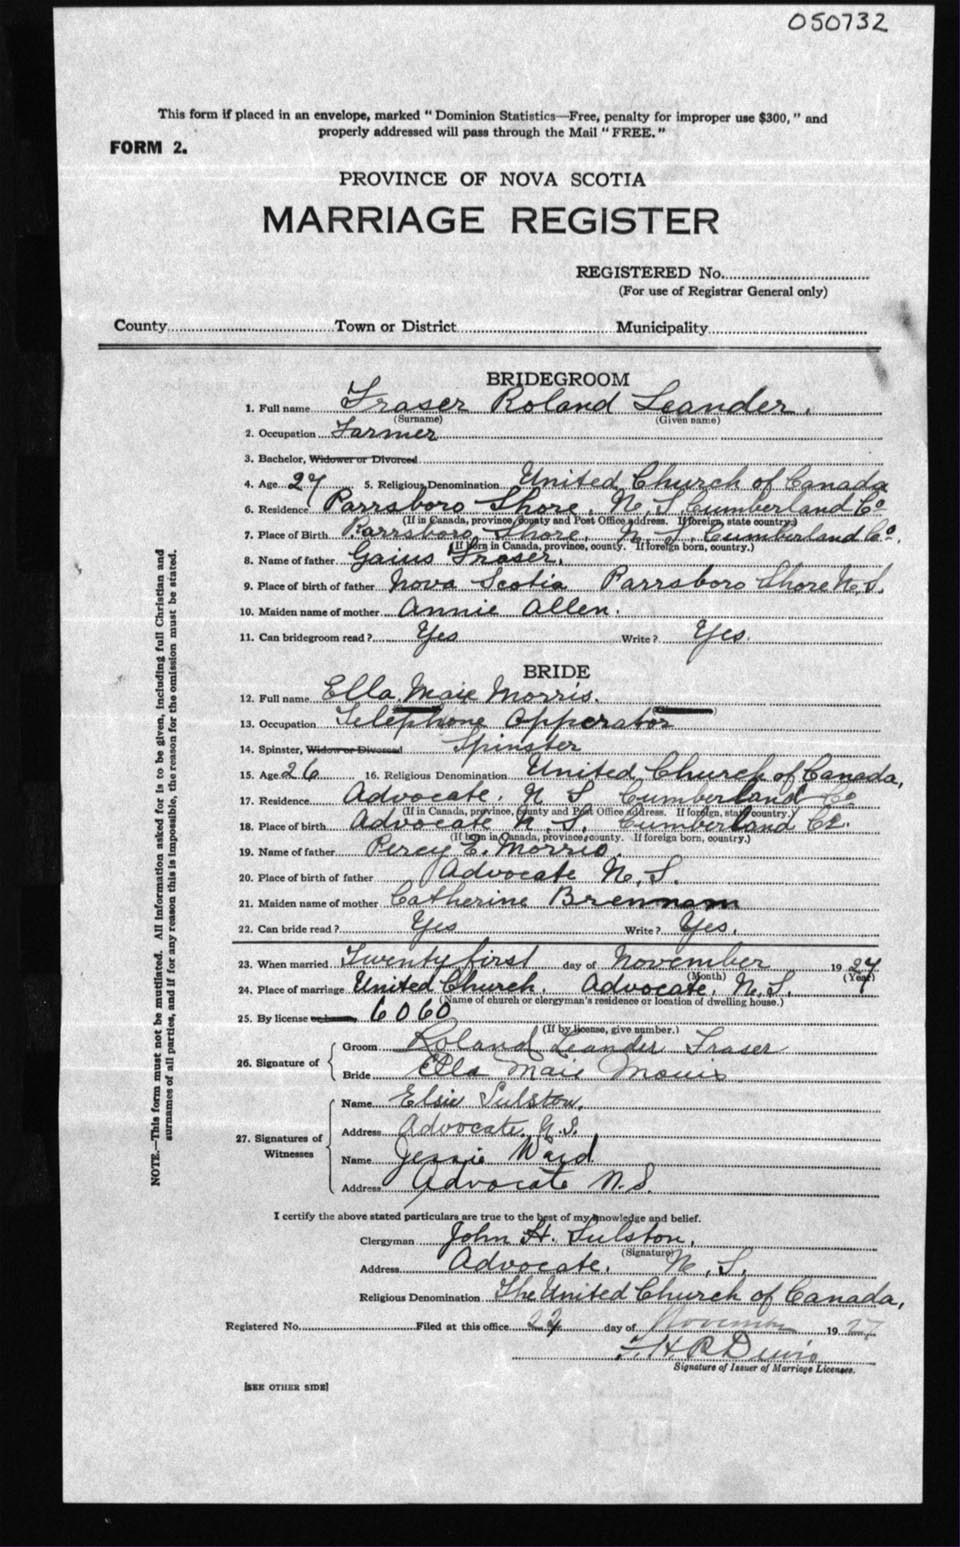 050732
This form if placed in an envelope, marked "Dominion Statistics—Free, penalty for improper use $300," and
properly addressed will pass through the Mail "FREE."
FORM 2.
PROVINCE OF NOVA SCOTIA
MARRIAGE REGISTER
REGISTERED No.
(For use of Registrar General only)
County Town or District Municipality
BRIDEGROOM
1. Full name Fraser Roland Leander.
(Surname) (Given name)
2. Occupation Farmer
3. Bachelor, Widower or Divorced
4. Age 27 5. Religious Denomination United Church of Canada
6. Residence Parrsboro Shore, N. S. Cumberland Co
(If in Canada, province, county and Post Office address. If foreign, state country.)
7. Place of Birth Parrsboro Shore. N. S. Cumberland Co.
(If born in Canada, province, county. If foreign born, country.)
8. Name of father Gaius Fraser.
9. Place of birth of father Nova Scotia Parrsboro Shore N.S.
10. Maiden name of mother Annie Allen.
11. Can bridegroom read? Yes Write? Yes.
BRIDE
12. Full name Ella Maie Morris.
13. Occupation Telephone Opperator
14. Spinster, Widow or Divorced Spinster
15. Age 26 16. Religious Denomination United Church of Canada,
17. Residence Advocate. N S Cumberland Co
(If in Canada, province, county and Post Office address. If foreign, state country.)
18. Place of birth Advocate N. S. Cumberland Co.
(If born in Canada, province, county. If foreign born, country.)
19. Name of father Percy E. Morris.
20. Place of birth of father Advocate N. S.
21. Maiden name of mother Catherine Brennam
22. Can bride read? Yes Write? Yes.
23. When married Twenty first day of November 1927
(Month) (Year)
24. Place of marriage United Church. Advocate. N.S.
(Name of church or clergyman's residence or location of dwelling house.)
25. By license 6060
(If by license, give number.)
26. Signature of Groom Roland Leander Fraser
Bride Ella Maie Morris
27. Signatures of Witnesses
Name Elsie Sulston.
Address Advocate. N.S.
Name Jessie Ward
Address Advocate N.S.
I certify the above stated particulars are true to the best of my knowledge and belief.
Clergyman John H. Sulston.
(Signature)
Address Advocate. N. S.
Religious Denomination The United Church of Canada,
Registered No. Filed at this office day of November 1927
Signature of Issuer of Marriage Licenses.
[SEE OTHER SIDE]
NOTE.—This form must not be mutilated. All information asked for is to be given, including full Christian and
surnames of all parties, and if for any reason this is impossible, the reason for the omission must be stated.